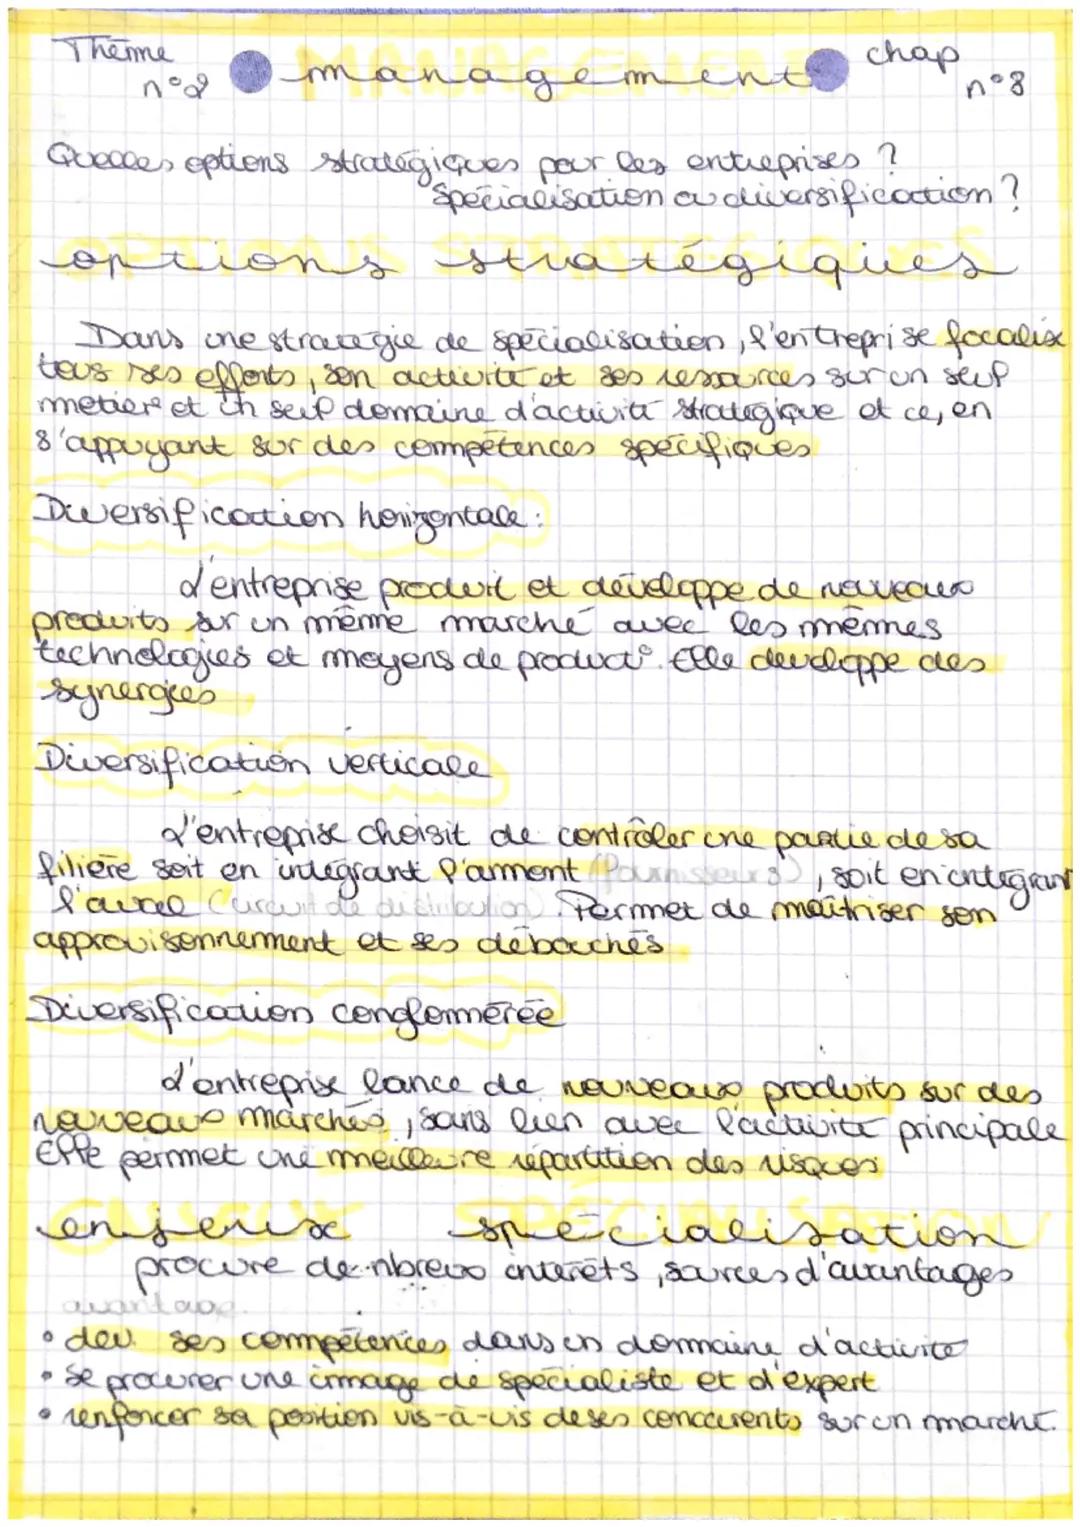 Thème n°2
management
chap n°3
Quelles options stratégiques pour les entreprises ?
Spécialisation ou diversification ?
options stratégiques
Dans une stratégie de spécialisation, l'entreprise focalise
tous ses efforts, son activité et ses ressources sur un seul
métier et un seul domaine d'activité stratégique et ce, en
s'appuyant sur des compétences spécifiques
Diversification horizontale :
L'entreprise produit et développe de nouveaux
produits sur un même marché avec les mêmes
technologies et moyens de product°. Elle developpe des
synergies
Diversification verticale
L'entreprise choisit de contrôler une partie de sa
filière soit en intégrant l'amont (fournisseurs), soit en intégrant
l'aval (circuit de distribution). Permet de maîtriser son
approvisonnement et ses débouchés
Diversification conglomérée
L'entreprise lance de nouveaux produits sur des
nouveaux marchés, sans lien avec l'activité principale
Elle permet une meilleure répartition des risques
enjeux spécialisation
procure de nbreux intérêts, sources d'avantages
avantage
• dev. ses compétences dans un domaine d'activité
• se procurer une image de spécialiste et d'expert
• renforcer sa position vis-à-vis de ses concurents sur un marché.